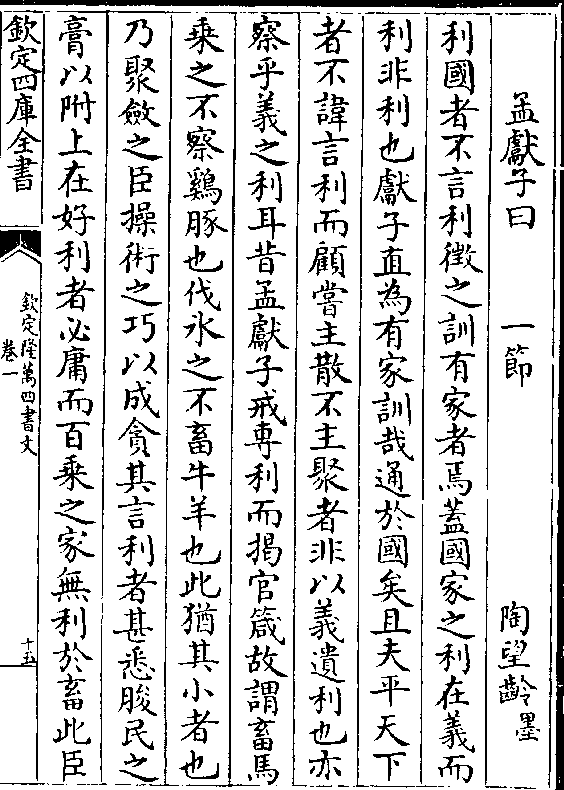 孟獻子曰 一節 陶望齡墨
利國者不言利徴之訓有家者焉蓋國家之利在義而
利非利也獻子直為有家訓哉通於國矣且夫平天下
者不諱言利而顧嘗主散不主聚者非以義遺利也亦
察乎義之利耳昔孟獻子戒專利而揭官箴故謂畜馬
乗之不察鷄豚也伐氷之不畜牛羊也此猶其小者也
乃聚斂之臣操術之巧以成貪其言利者甚悉朘民之
膏以附上在好利者必庸而百乗之家無利於畜此臣
欽定四庫全書
欽定隆萬四書文
卷一
十五